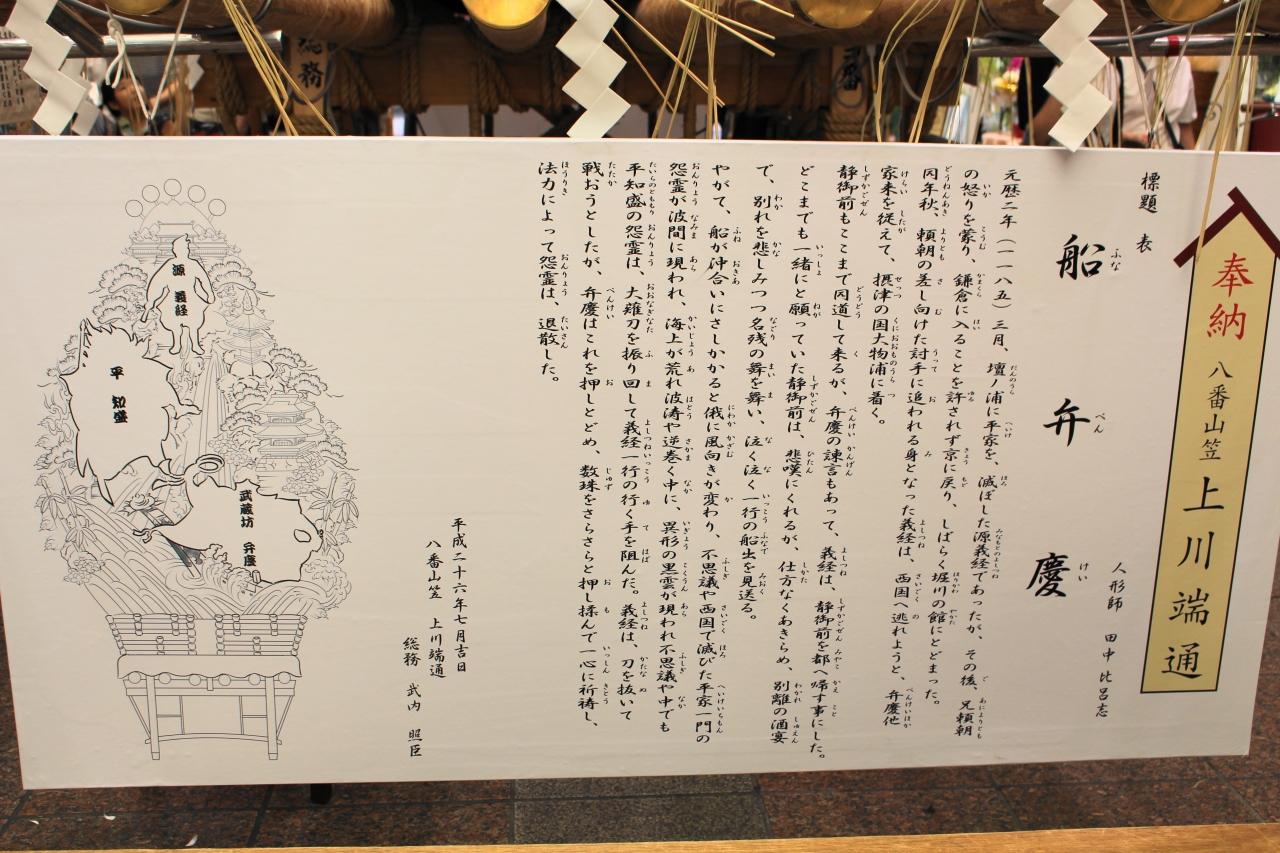 奉納 八番山笠 上川端通
標題 表
船弁慶
ふな べん けい
人形師 田中 比呂志
元歴二年(一一八五)三月、壇ノ浦に平家を、滅ぼした源義経であったが、その後、兄頼朝
の怒りを蒙り、鎌倉に入ることを許されず京に戻り、しばらく堀川の館にとどまった。
同年秋、頼朝の差し向けた討手に追われる身となった義経は、西国へ逃れようと、弁慶他
家来を従えて、摂津の国大物浦に着く。
静御前もここまで同道して来るが、弁慶の諫言もあって、義経は、静御前を都へ帰す事にした。
どこまでも一緒にと願っていた静御前は、悲嘆にくれるが、仕方なくあきらめ、別離の酒宴
で、別れを悲しみつつ名残の舞を舞い、泣く泣く一行の船出を見送る。
やがて、船が沖合いにさしかかると俄に風向きが変わり、不思議や西国で滅びた平家一門の
怨霊が波間に現われ、海上が荒れ波涛や逆巻く中に、異形の黒雲が現われ不思議や中でも
平知盛の怨霊は、大薙刀を振り回して義経一行の行く手を阻んだ。義経は、刀を抜いて
戦おうとしたが、弁慶はこれを押しとどめ、数珠をさらさらと押し揉んで一心に祈祷し、
法力によって怨霊は、退散した。
平成二十六年七月吉日
八番山笠 上川端通
総務 武内 照臣
源 義経
平 知盛
武蔵坊 弁慶
総務